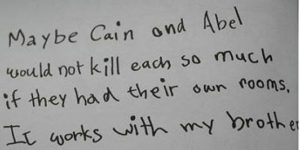 Maybe Cain and Abel
would not kill each so much
if they had their own rooms.
It works with my brothe